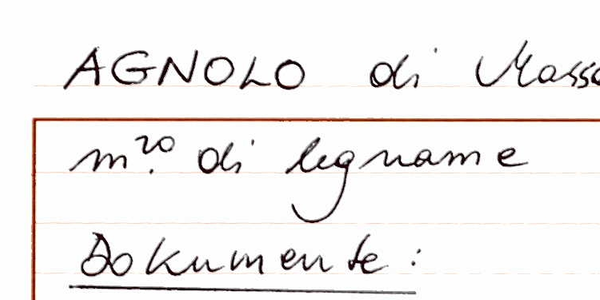 AGNOLO di Masso
m.ro di legname
Dokumente: